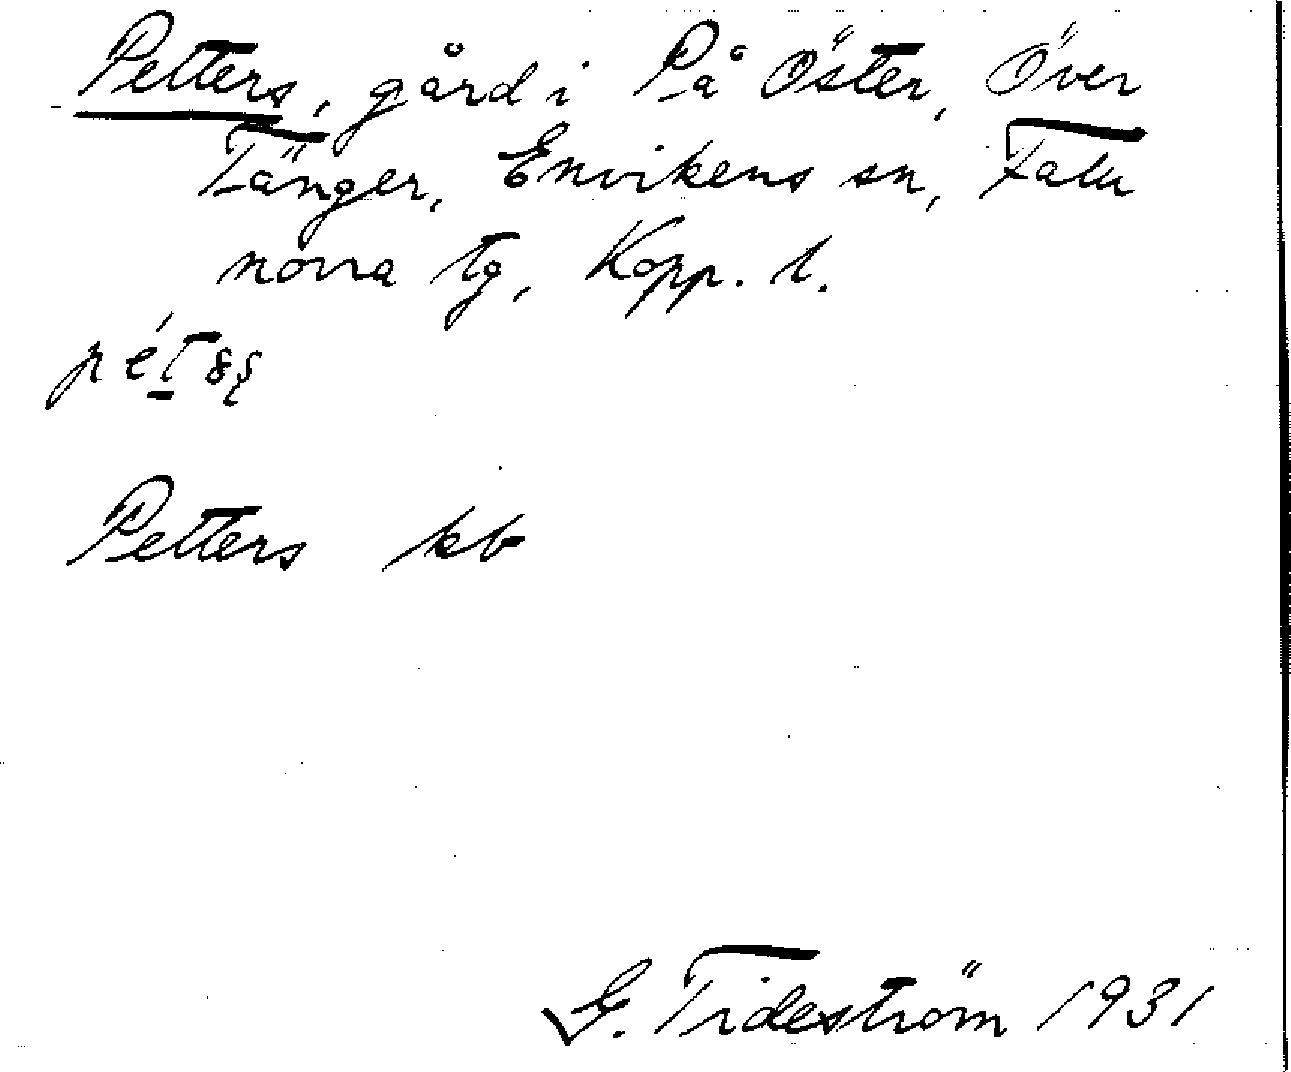 Petters, gård i På Öster, Över
Tänger, Envikens sn, Falu
norra tg, Kopp. l.
Petters kb
G. Tideström 1931